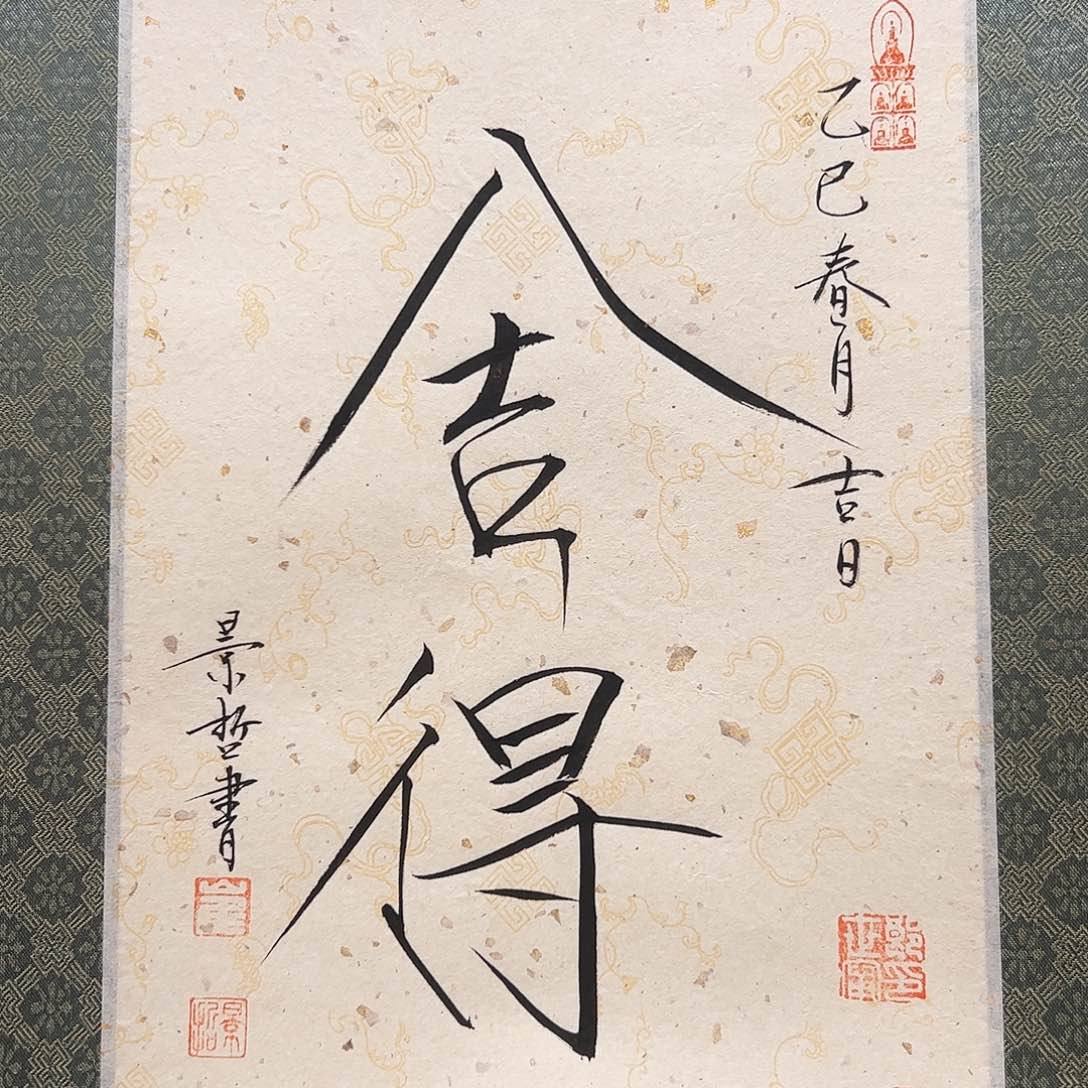 乙巳春月吉日
舍得
景哲書
景哲